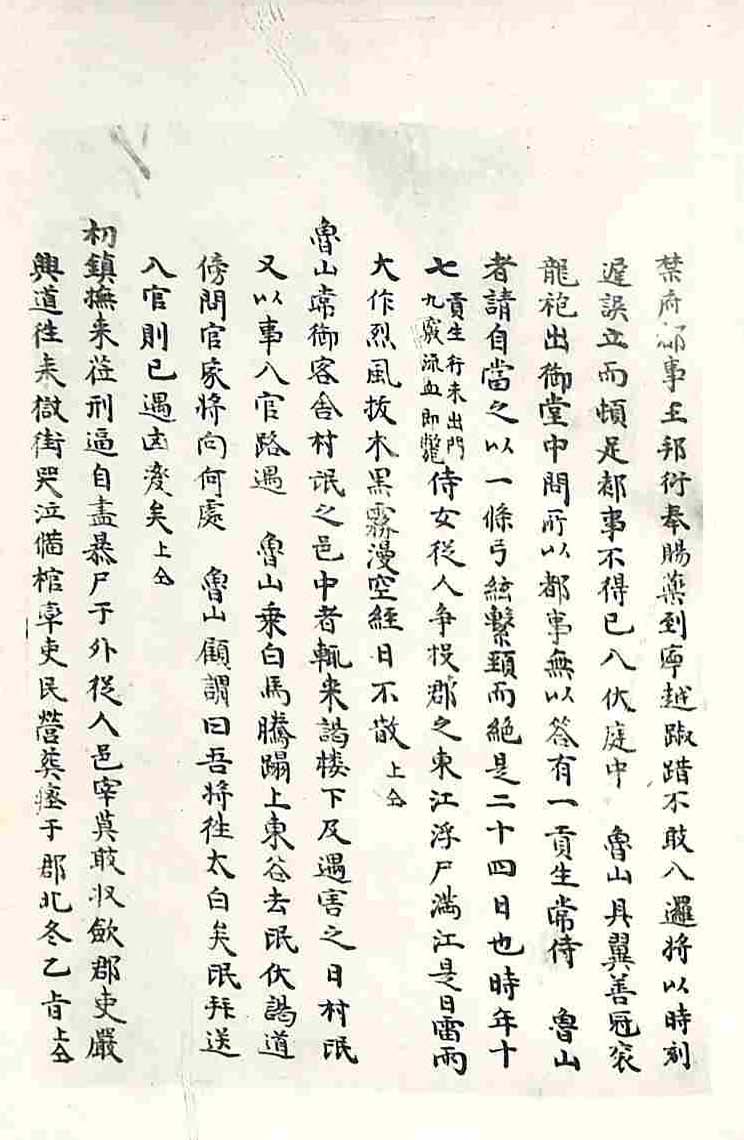 禁府都事王邦衍奉賜藥到寧越踧踖不敢入邏將以時刻
遲誤立而頓足都事不得已入伏庭中 魯山具翼善冠袞
龍袍出御堂中問所以都事無以答有一貢生常侍 魯山
者請自當之以一條弓絃繫頸而絶是二十四日也時年十
七貢生行未出門九竅流血即斃侍女從人争投郡之東江浮尸滿江是日雷雨
大作烈風拔木黑霧漫空經日不散上仝
魯山常御客舍村氓之邑中者輒来謁樓下及遇害之日村氓
又以事入官路遇 魯山乗白馬騰蹋上東谷去氓伏謁道
傍問官家將向何處 魯山顧謂曰吾將徃太白矣氓拜送
入官則已遇凾
矣上仝
初鎭撫来莅刑逼自盡暴尸于外從人邑宰莫敢収歛郡吏嚴
興道徃来獄街哭泣備棺率吏民營葬瘞于郡北冬乙旨上仝